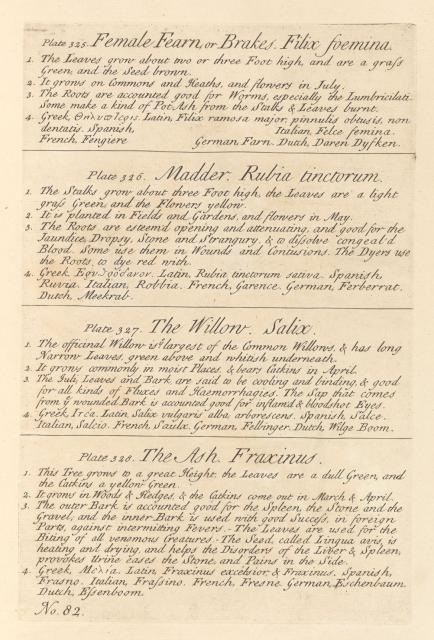 Plate 325. Female Fearn, or Brakes. Filix foemina.
1. The Leaves grow about two or three Foot high, and are a grass
Green; and the Seed brown.
2. It grows on Commons and Heaths, and flowers in July.
3. The Roots are accounted good for Worms, especially the Lumbricilati.
Some make a kind of Pot Ash from the Stalks & Leaves burnt.
4. Greek, Θηλυπτερις. Latin, Filix ramosa major, pinnulis obtusis, non
dentatis. Spanish, Italian, Felce femina.
French, Fengiere German Farn. Dutch, Daren Dyfken.
Plate 326. Madder. Rubia tinctorum.
1. The Stalks grow about three Foot high, the Leaves are a light
grass Green, and the Flowers yellow.
2. It is planted in Fields and Gardens, and flowers in May.
3. The Roots are esteem'd opening and attenuating, and good for the
Jaundice, Dropsy, Stone and Strangury, & to dissolve congeal'd
Blood. Some use them in Wounds and Contusions. The Dyers use
the Roots, to dye red with.
4. Greek, Latin, Rubia tinctorum sativa. Spanish,
Ruvia. Italian, Robbia. French, Garence. German, Ferberrat.
Dutch, Meekrab.
Plate 327. The Willow. Salix.
1. The officinal Willow is yᵉ largest of the Common Willows, & has long
Narrow Leaves, green above and whitish underneath.
2. It grows commonly in moist Places, & bears Catkins in April.
3. The Juli, Leaves and Bark, are said to be cooling and binding, & good
for all kinds of Fluxes and Haemorrhagies. The Sap that comes
from yᵉ wounded Bark is accounted good for inflam'd & bloodshot Eyes.
4. Greek, Ιτέα. Latin, Salix vulgaris alba, arborescens. Spanish, Salce.
Italian, Salcio. French, Saulx. German, Felbinger. Dutch, Wilge Boom.
Plate 328. The Ash. Fraxinus.
1. This Tree grows to a great Height, the Leaves are a dull Green, and
the Catkins a yellow Green.
2. It grows in Woods & Hedges, & the Catkins come out in March & April.
3. The outer Bark is accounted good for the Spleen, the Stone and the
Gravel; and the inner Bark is used with good Success, in foreign
Parts, against intermitting Fevers. The Leaves are used for the
Biting of all venomous Creatures. The Seed, called Lingua avis, is
heating and drying, and helps the Disorders of the Liver & Spleen,
provokes Urine, eases the Stone, and Pains in the Side.
4. Greek, Μελία. Latin, Fraxinus excelsior, & Fraxinus. Spanish,
Frasno. Italian, Frassino. French, Fresne. German, Eschenbaum.
Dutch, Essenboom.
No. 82.